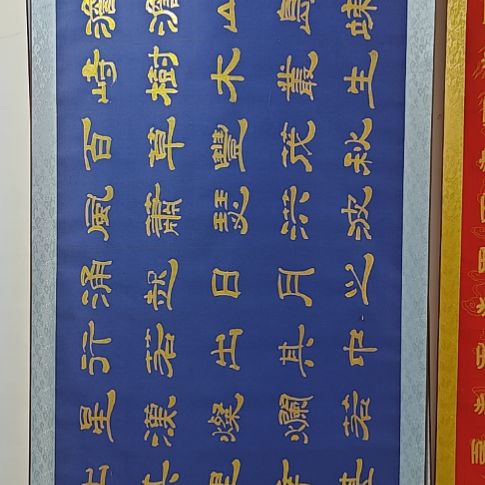 澹澹山島竦
峙樹木叢生
百草豐茂秋
風蕭瑟洪波
湧起日月之
行若出其中
星漢燦爛若
出其裏幸甚